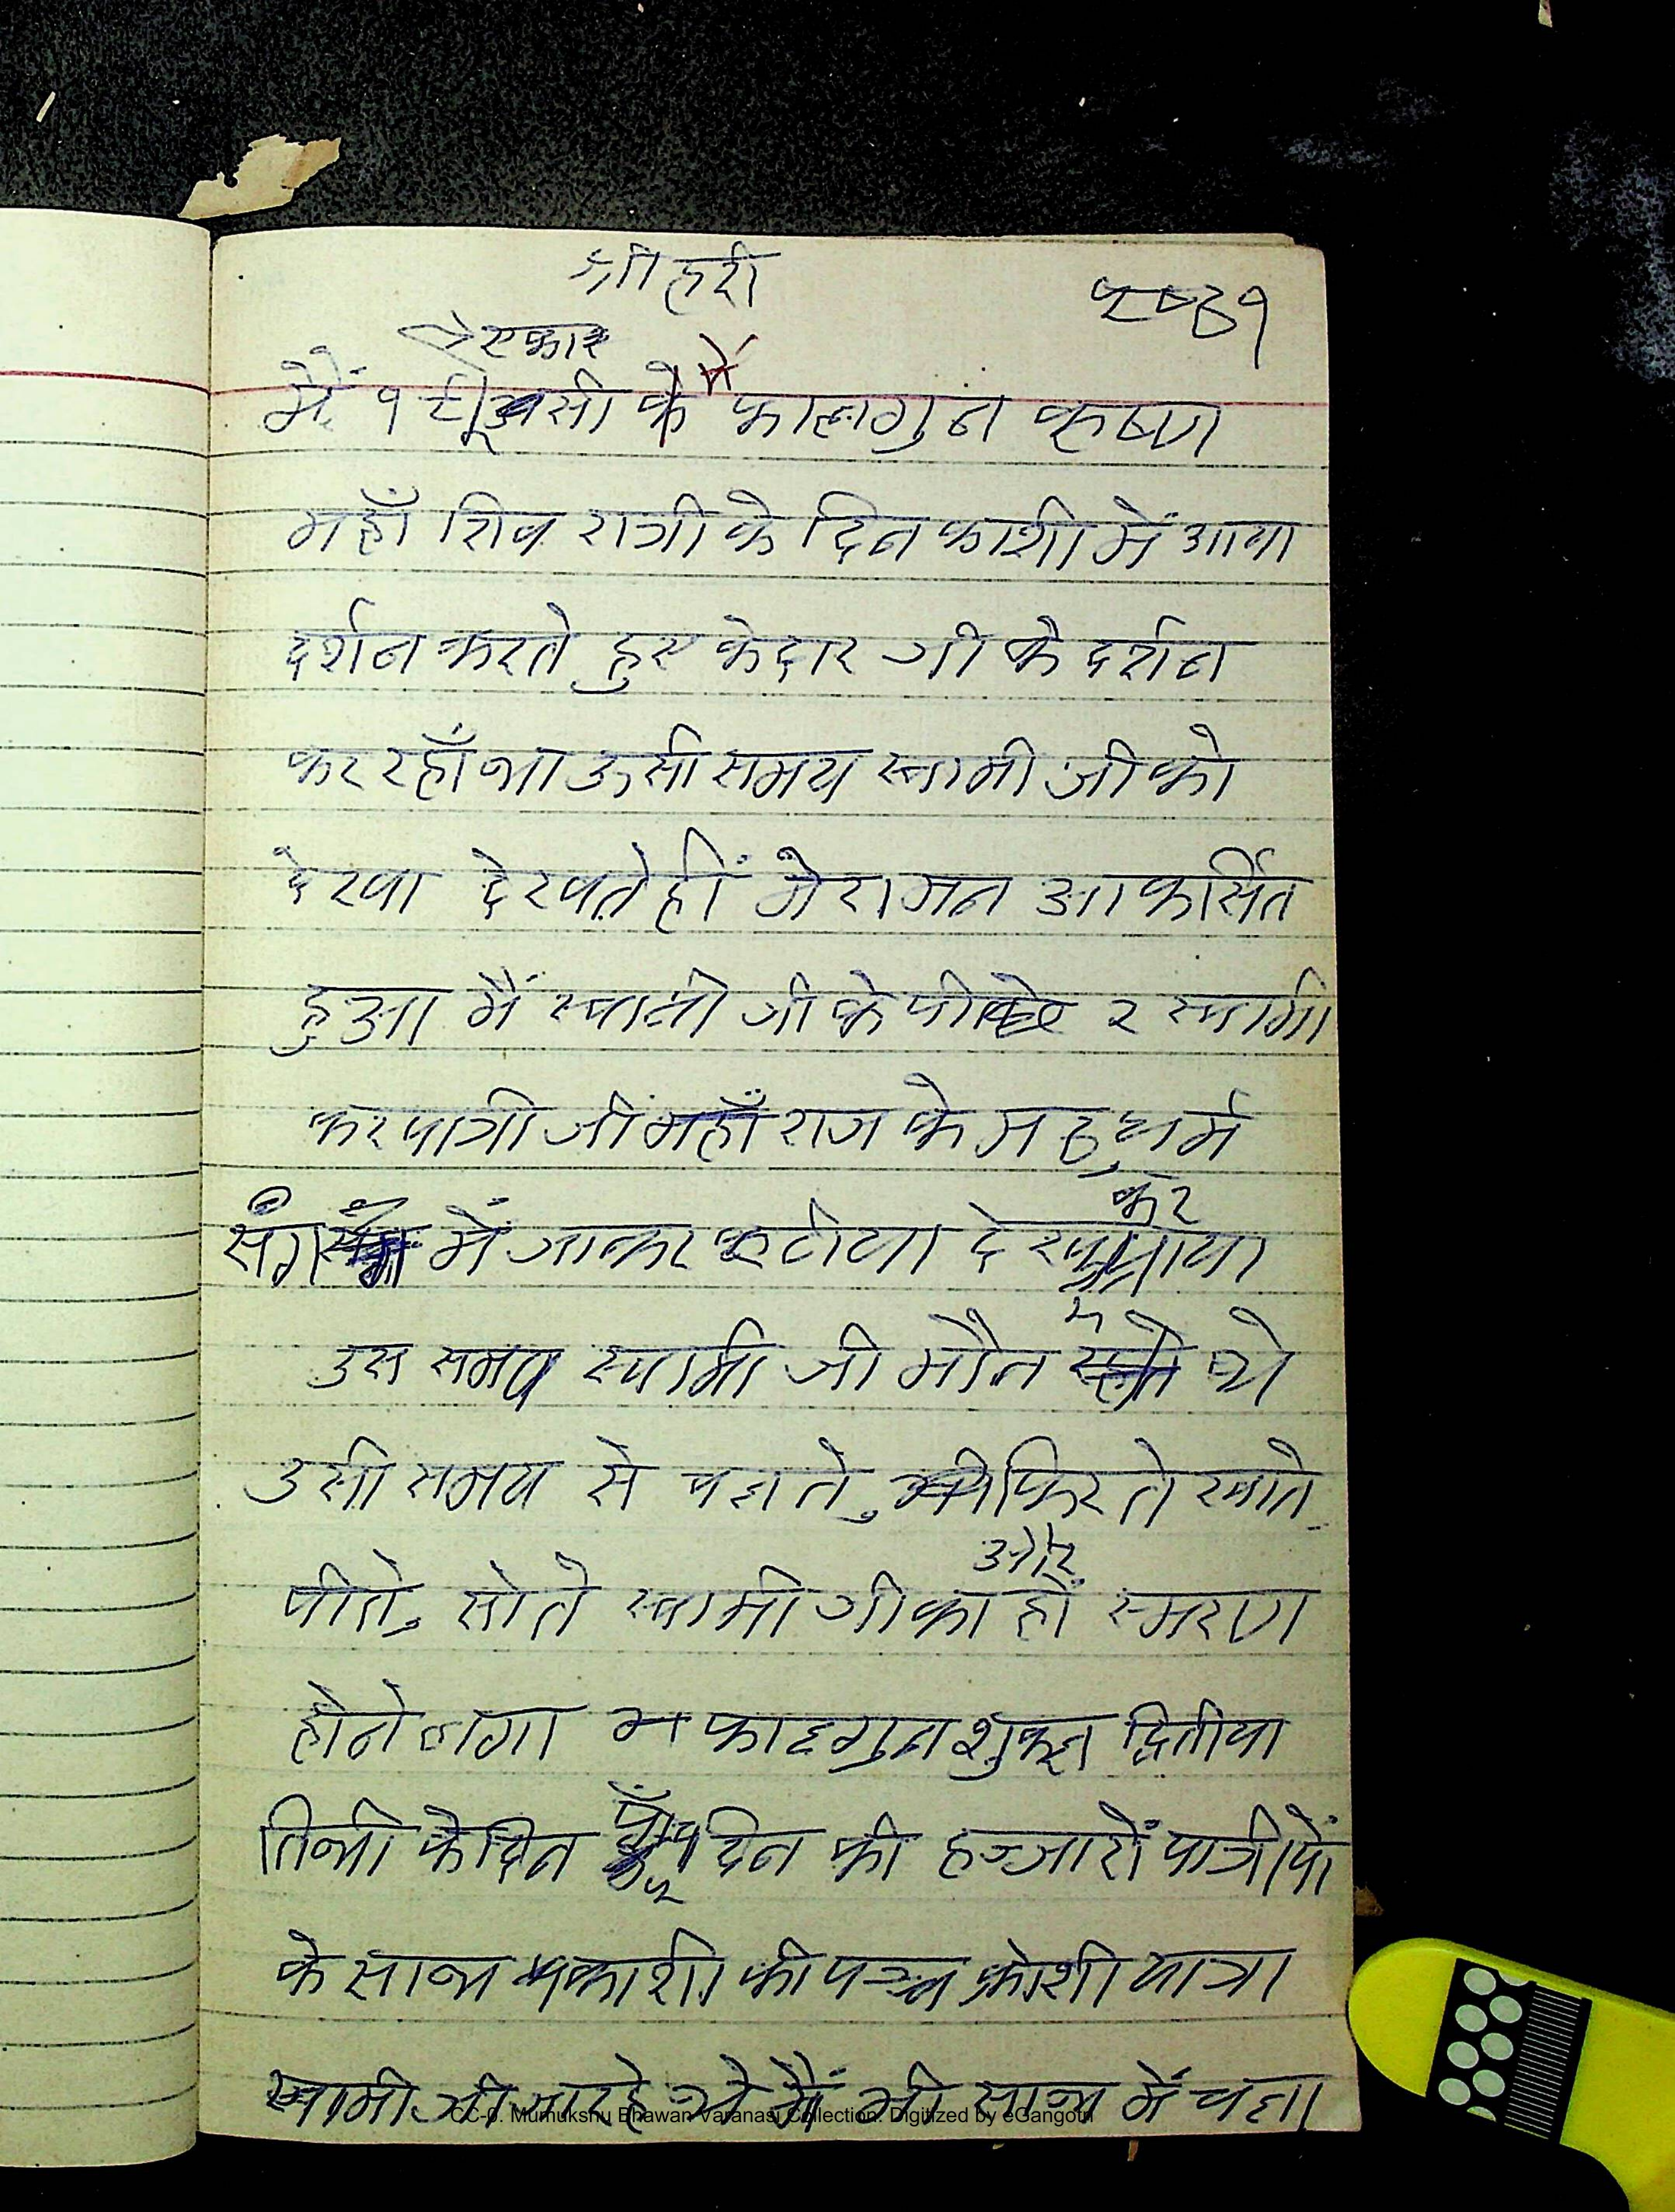 श्री हरी
पृष्ठ १
एकार
में
मैं १ के फाल्गुन कृष्ण
महाँ शिव रात्री के दिन काशी में आया
दर्शन करते हुए केदार जी के दर्शन
कर रहाँ था उसी समय स्वामी जी को
देखा देखते हीं मेरा मन आकर्सित
हुआ मैं स्वामी जी के पीछे २ स्वामी
करपात्री जीं महाँराज के मठ, धर्म
कर
संग में जाकर देख आया
उस समय स्वामी जी मौन थे
उसी समय से चलते, फिरते खाते
और
पीते, सोते स्वामी जी का हीं स्मरण
होने लगा फाल्गुन शुक्ल द्वितीया
तिथी के दिन पाँच दिन की हज्जारों यात्रीयों
के साथ काशी की पञ्च क्रोशी यात्रा
स्वामी जी जा रहे थे मैं भी साथ में चला
CC-0. Mumukshu Bhawan Varanasi Collection. Digitized by eGangotri